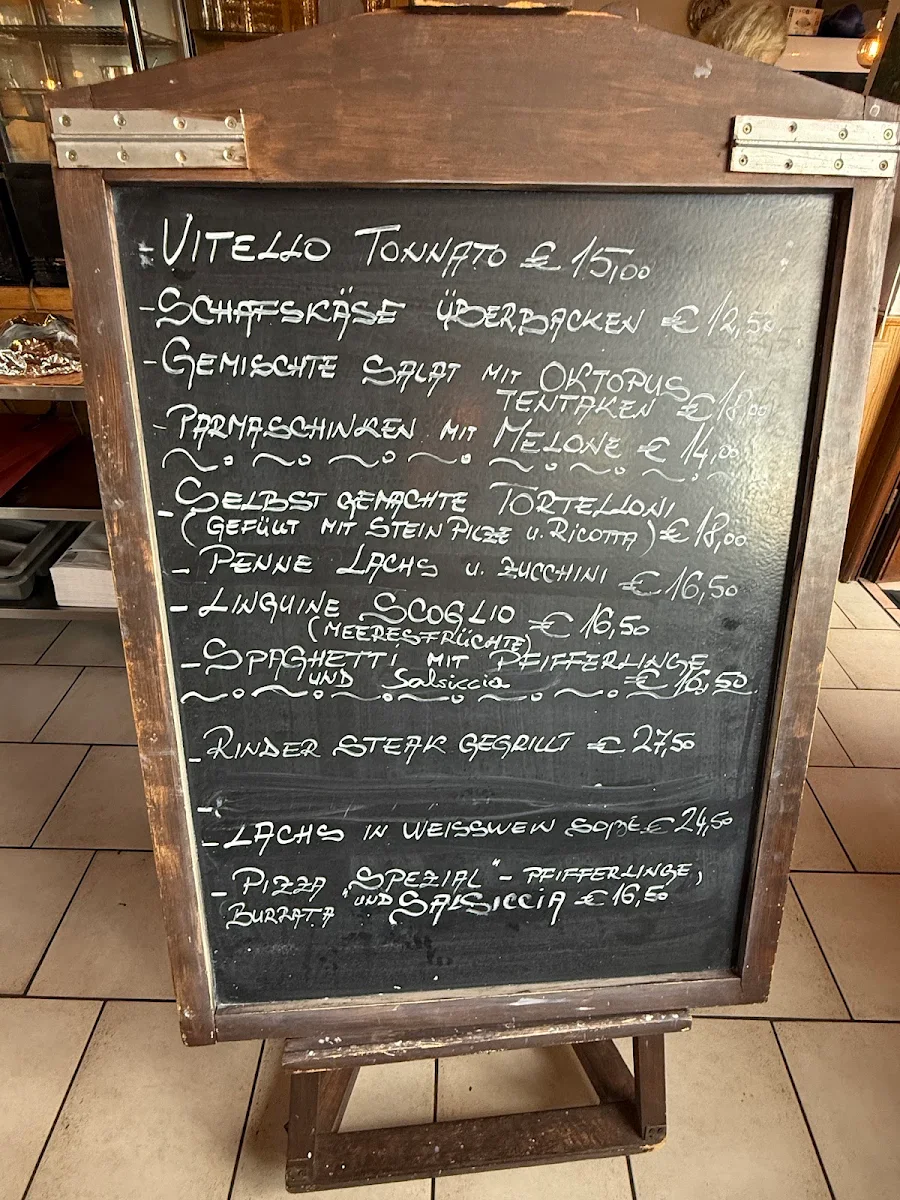 - VITELLO TONNATO € 15,00
- SCHAFSKÄSE ÜBERBACKEN € 12,50
- GEMISCHTE SALAT MIT OKTOPUS
TENTAKEN € 18,00
- PARMASCHINKEN MIT MELONE € 14,00
- SELBST GEMACHTE TORTELLONI
(GEFÜLLT MIT STEIN PILZE u. RICOTTA) € 18,00
- PENNE LACHS u. ZUCCHINI € 16,50
- LINGUINE SCOGLIO € 16,50
(MEERESFRÜCHTE)
- SPAGHETTI MIT PFIFFERLINGE
UND Salsiccia € 16,50
- RINDER STEAK GEGRILLT € 27,50
-
- LACHS IN WEISSWEIN SOßE € 24,50
- PIZZA "SPEZIAL" - PFIFFERLINGE,
BURRATA UND SALSICCIA € 16,50